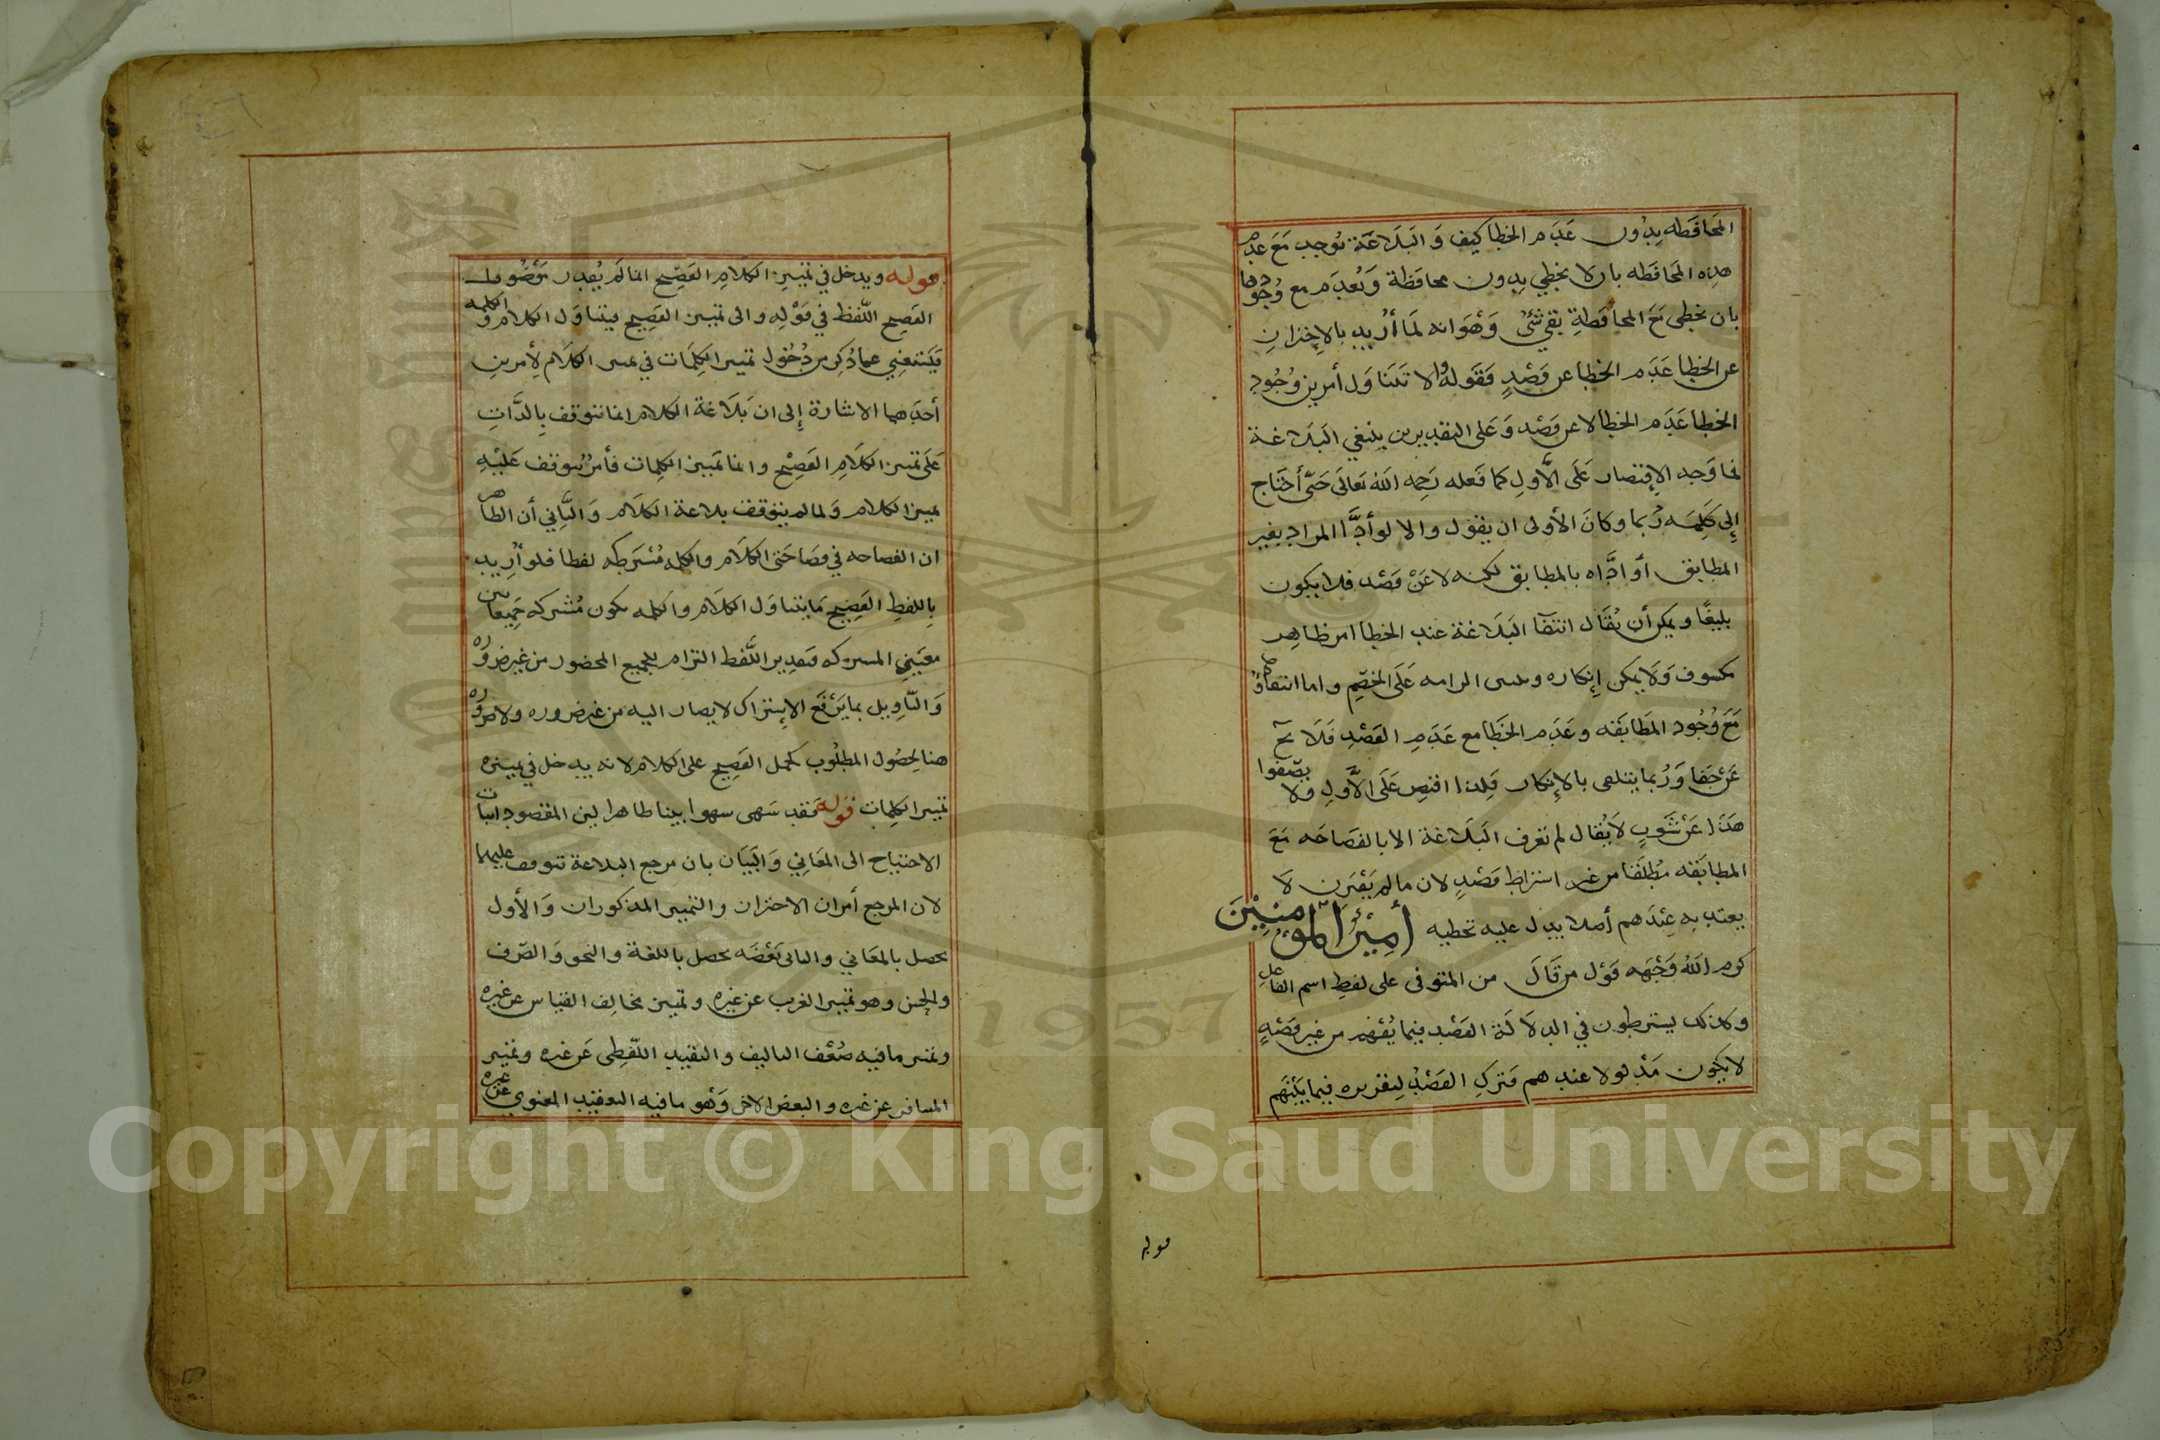 المحافظه بدون عدم الخطا كيف والبلاغة توجب مع عدم
هذه المحافظه بان لا يخطي بدون محافظة وتعدم مع وجودها
بان يخطى مع المحافظة بقي شئ وهو انه لما أريد بالاحتراز
عن الخطا عدم الخطا عن قصد فقوله والا تتناول أمرين وجود
الخطا عدم الخطا لا عن قصد وعلى التقديرين ينتفي البلاغة
فما وجه الاقتصار على الأول كما فعله رحمه الله تعالى حتى أحتاج
إلى كلمة ربما وكان الأولى ان يقول والا لو أدا المراد بغير
المطابق أو ادّاه بالمطابق لكنه لا عن قصد فلا يكون
بليغا ويمكن أن يقال انتفا البلاغة عند الخطا امر ظاهر
مكشوف ولا يمكن إنكاره على الخصم واما انتفاؤها
مع وجود المطابقه وعدم الخطا مع عدم القصد فلا يخ
عن خفا وربما يتلقى بالانكار فلذا اقتصر على الأول ولا يصفوا
هذا عن شوب لا يقال لم تعرف البلاغة الا بالفصاحه مع
المطابقه مطلقا من غير اشتراط قصد لان ما لم يقترن لا
يعتد به عندهم أصلا يدل عليه تخطيه أمير المومنين
كرم الله وجهه قول من قال من المتوفى على لفظ اسم الفاعل
وكذلك يشترطون في الدلالة القصد فيما يفهم من غير قصد
لا يكون مدلولا عندهم فترك القصد لتقرره فيما بينهم
قوله
قوله ويدخل في تمييز الكلام الفصيح انما لم يقدر موصوف
الفصيح اللفظ في قوله والى تمييز الفصيح فيتناول الكلام والكلمه
فيستغني عما ذكر من دخول تمييز الكلمات في تمييز الكلام لأمرين
أحدهما الاشارة إلى ان بلاغة الكلام انما تتوقف بالذات
على تمييز الكلام الفصيح وانما تمييز الكلمات فأمر يتوقف عليه
تمييز الكلام ولما لم يتوقف بلاغة الكلام والثاني أن الظاهر
ان الفصاحه في فصاحتي الكلام والكلمه مشتركه لفظا فلو أريد
باللفظ الفصيح ما يتناول الكلام والكلمه يكون مشتركه جميعا بين
معنيي المشتركه فتقدير اللفظ التزام للجميع المحضور من غير ضروره
والتاويل بما يرفع الاشتراك لا يصار اليه من غير ضروره ولا ضروره
هنا لحصول المطلوب كحمل الفصيح على الكلام لانه يدخل في تمييزه
تمييز الكلمات قوله فقد سهى سهوا بينا ظاهرا لين المقصود اثبات
الاحتياج الى المعاني والبيان بان مرجع البلاغة تتوقف عليهما
لان المرجع أمران الاحتراز والتمييز المذكوران والأول
يحصل بالمعاني والثانى بعضه يحصل باللغة والنحو والصرف
والحس وهو تمييز الغريب عن غيره وتمييز مخالف القياس عن غيره
وتمييز ما فيه ضعف التاليف والتعقيد اللفظى عن غيره وتمييز
المتنافر عن غيره والبعض الاخر وهو ما فيه التعقيد المعنوي عن غيره
Copyright © King Saud University
1957